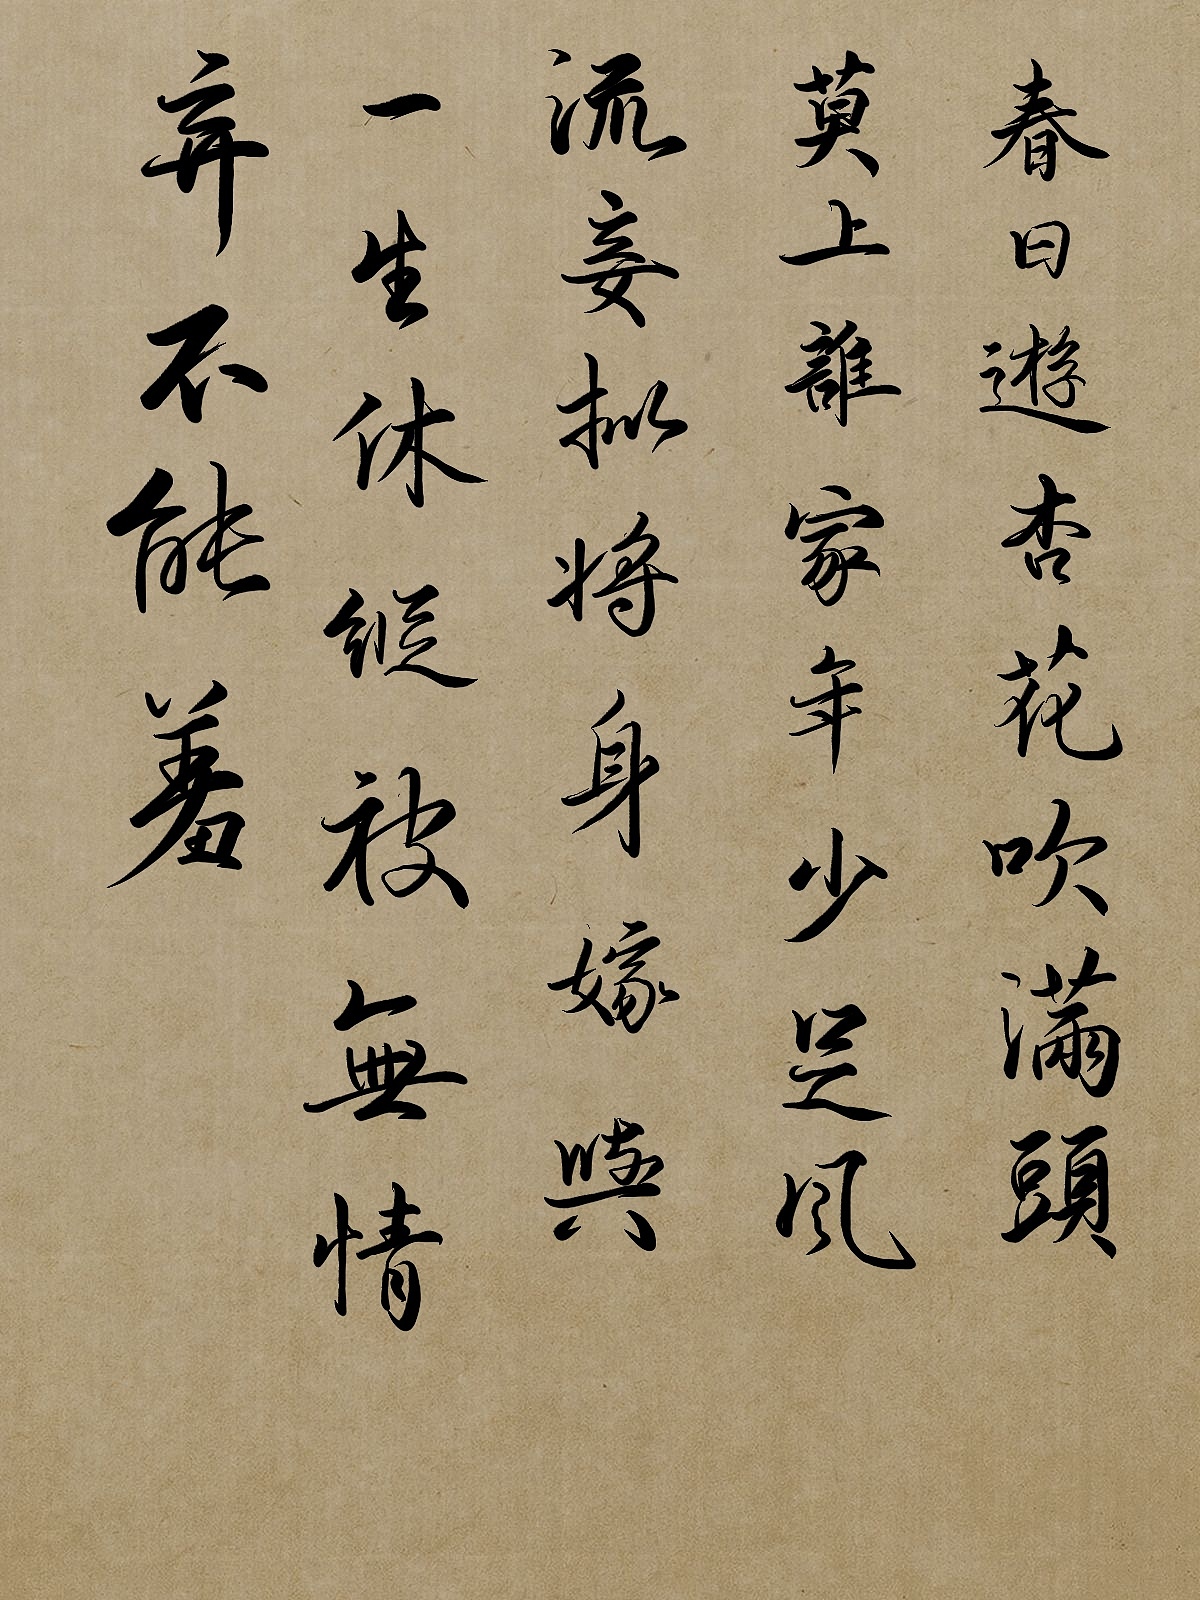 春日遊杏花吹滿頭
莫上誰家年少足風
流妾拟将身嫁與
一生休縱被無情
弃不能羞